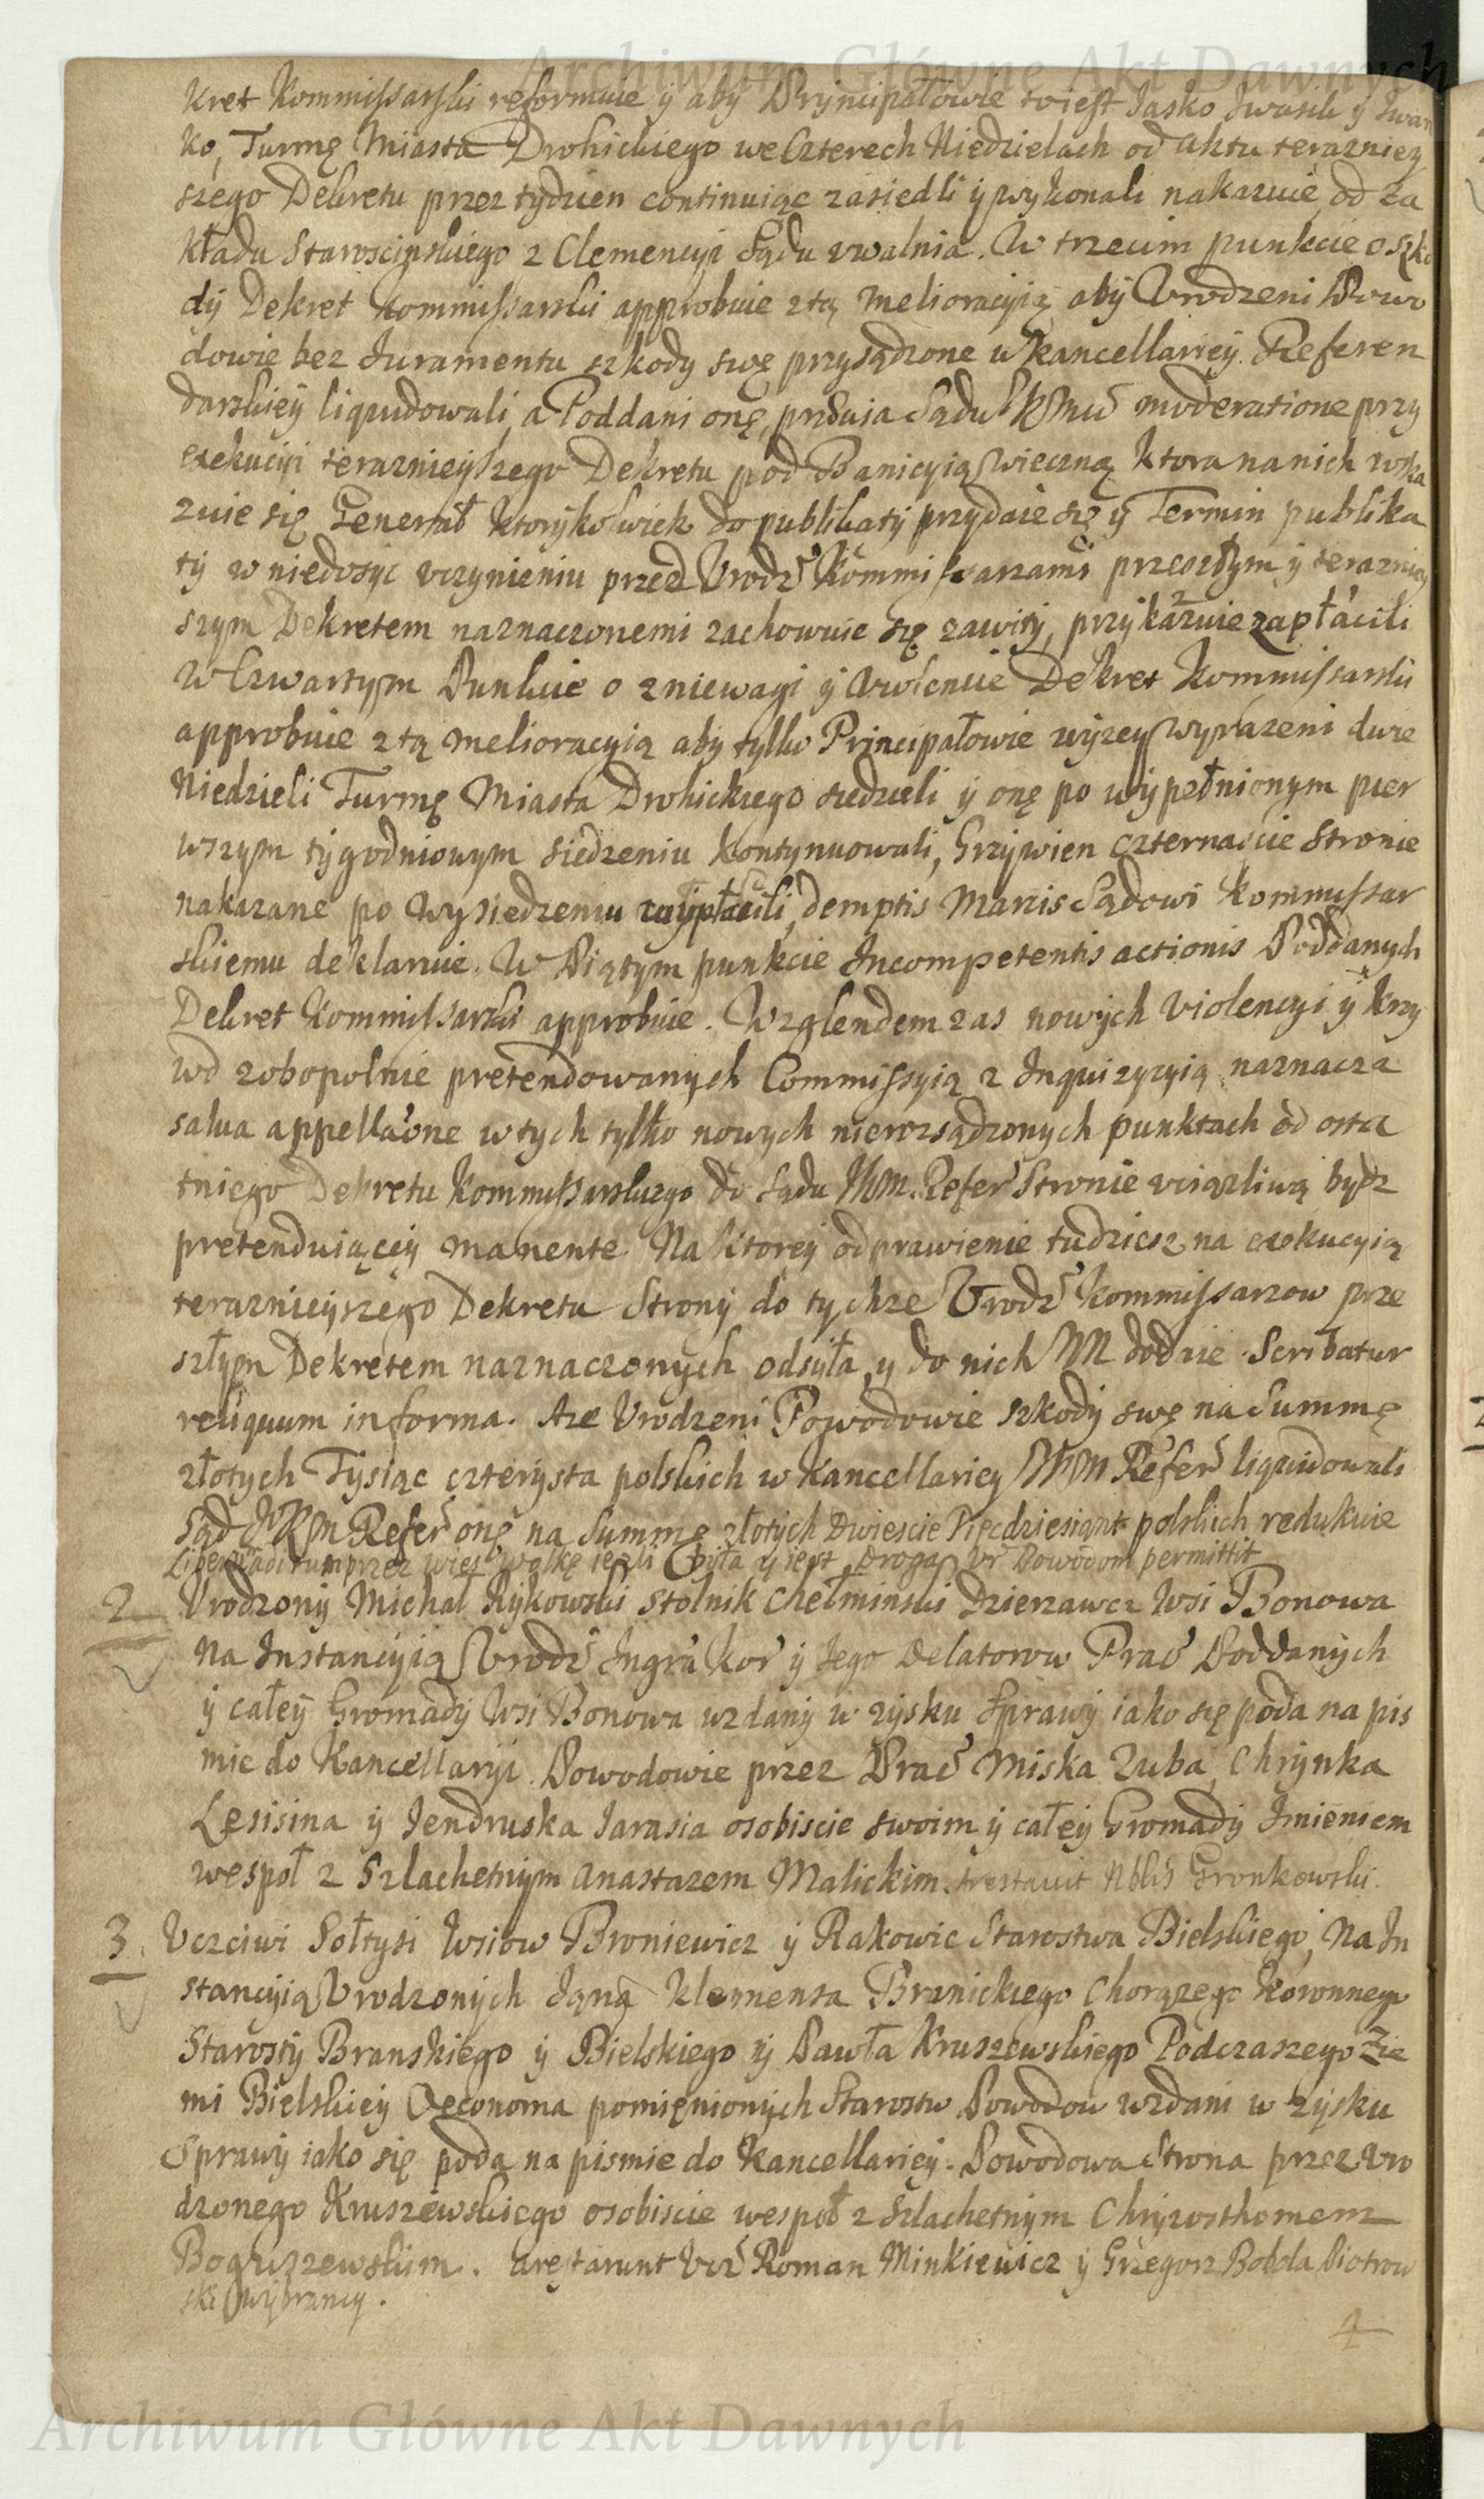 Archiwum Główne Akt Dawnych
kret Kommissarski reformuie y aby Pryncipałowie to iest Jasko Iwasik y Iwan
ko, Turmę Miasta Drohickiego we Czterech Niedzielach od aktu terazniey
szego Dekretu przez tydzien continuiąc zasiedli y wykonali nakazuie, od za
kładu Staroscinskiego z Clemencyi Sądu uwalnia. W trzecim punkcie o szko
dy Dekret Kommissarski approbuie z tą melioracyią aby Urodzeni Powo
dowie bez Juramentu szkody swę przysądzone w Kancellariey Referen
darskiey liquidowali, a Poddani onę, prævia Sądu JKMci moderatione przy
exekucyi teraznieyszego Dekretu pod Banicyią wieczną ktora na nich wska
zuie się Generał ktorykolwiek do publikaty przydaie się y Termin publika
ty w niedosyc uczynieniu przed Urodź Kommissarzami przeszłym y teraźniey
szym Dekretem naznaczonemi zachowuie się zawity, przykazuie zapłacili
W Czwartym Punkcie o zniewagi y Dekret Kommissarski
approbuie z tą melioracyią aby tylko Principałowie wyzey wyrazeni dwie
Niedzieli Turmę Miasta Drohickiego siedzieli y onę po wypełnionym pier
wszym tygodniowym siedzeniu kontynuowali, Grzywien czternascie Stronie
nakazane po wysiedzeniu wypłacili, demptis Marcis Sądowi Kommissar
skiemu deklaruie. W Piątym punkcie Incompetentis actionis Poddanych
Dekret Kommissarski approbuie. Wzglendem zas nowych violencyi y krzy
wd zobopolnie pretendowanych Commissyią z Inquizycyią naznacza
salva appellaone w tych tylko nowych nierozsądzonych punktach od osta
tniego Dekretu Kommissarskiego do Sądu JKM. Refer Stronie uciązliwą bydz
pretenduiącey manente. Na ktorey odprawienie tudziesz na exekucyią
teraznieyszego Dekretu Strony do tychze Urodź Kommissarzow prze
szłym Dekretem naznaczonych odsyła, y do nich dodaie. Scribatur
reliquum in forma. Aze Urodzeni Powodowie szkody swę na Summę
złotych Tysiąc czterysta polskich w Kancellariey JKM Refer liquidowali
Sąd JKM Refer onę na Summę złotych Dwiescie Pięcdziesiąnt polskich redukuie
przez wies Wolkę iezli była y iest Droga Ur Powodom permittit
2 Urodzony Michał Rykowski Stolnik Chełminski Dzierzawca Wsi Bonowa
na Instancyią Urodź Ingra kor y Jego Delatorow Prac Poddanych
y całey Gromady Wsi Bonowa wzdany w zysku Sprawy iako się poda na pis
mie do Kancellaryi. Powodowie przez Prac Miska Zuba, Chrynka
Lesisina y Jendruska Jarasia osobiscie swoim y całey Gromady Imieniem
wespoł z Szlachetnym Anastazem Malickim. Nblis Gronkowski.
3. Uczciwi Sołtysi Wsiow Broniewicz y Rakowic Starostwa Bielskiego, Na In
stancyią Urodzonych Jana Klemensa Branickiego Chorązego Koronnego
Starosty Branskiego y Bielskiego y Pawła Kruszewskiego Podczaszego Zie
mi Bielskiey Oeconoma pomienionych Starostw Powodow wzdani w zysku
Sprawy iako się poda na pismie do Kancellariey. Powodowa Strona przez Uro
dzonego Kruszewskiego osobiscie wespoł z Szlachetnym Chryzosthomem
Boguszewskim. arestarunt Ucz Roman Minkiewicz y Grzegorz Bobola Piotrow
ski wybrancy.
4
Archiwum Główne Akt Dawnych